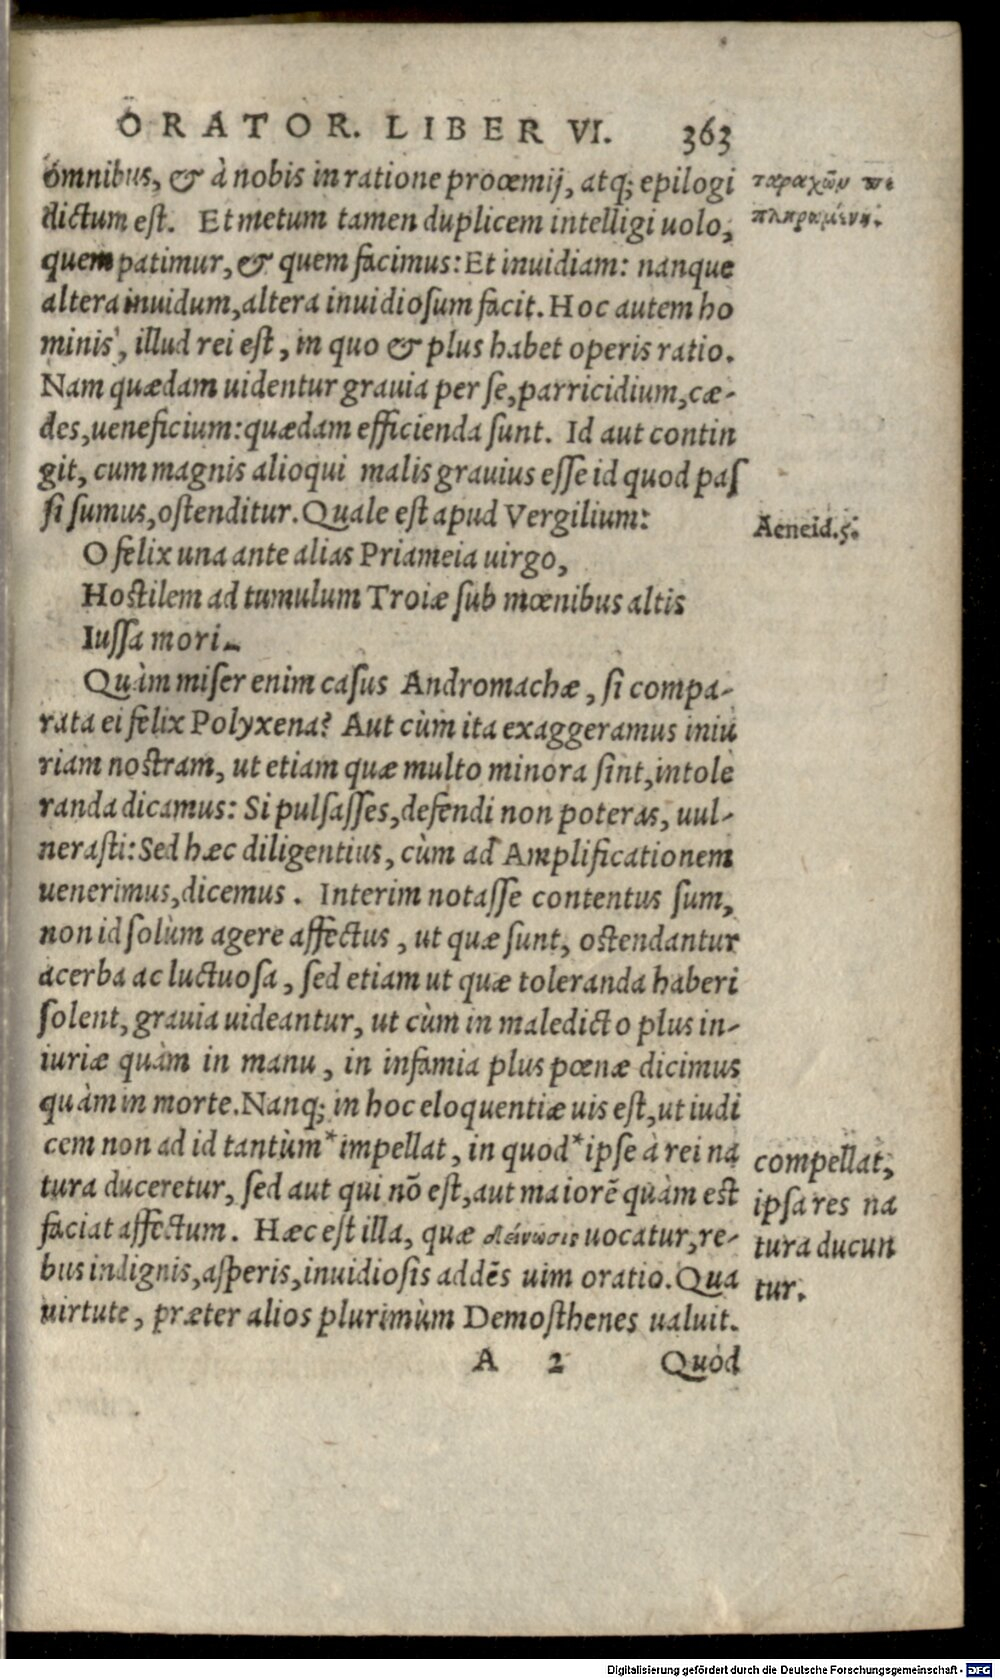 ORATOR. LIBER VI. 363
omnibus, & à nobis in ratione proœmij, atq; epilogi
dictum est. Et metum tamen duplicem intelligi uolo,
quem patimur, & quem facimus: Et inuidiam: nanque
altera inuidum, altera inuidiosum facit. Hoc autem ho
minis, illud rei est, in quo & plus habet operis ratio.
Nam quædam uidentur grauia per se, parricidium, cæ-
des, ueneficium: quædam efficienda sunt. Id aut contin
git, cum magnis alioqui malis grauius esse id quod pas
si sumus, ostenditur. Quale est apud Vergilium:
O felix una ante alias Priameia uirgo,
Hostilem ad tumulum Troiæ sub mœnibus altis
Iussa mori.
Quàm miser enim casus Andromachæ, si compa-
rata ei felix Polyxena? Aut cùm ita exaggeramus iniu
riam nostram, ut etiam quæ multo minora sint, intole
randa dicamus: Si pulsasses, defendi non poteras, uul-
nerasti: Sed hæc diligentius, cùm ad Amplificationem
uenerimus, dicemus. Interim notasse contentus sum,
non id solùm agere affectus, ut quæ sunt, ostendantur
acerba ac luctuosa, sed etiam ut quæ toleranda haberi
solent, grauia uideantur, ut cùm in maledicto plus in-
iuriæ quàm in manu, in infamia plus pœnæ dicimus
quàm in morte. Nanq; in hoc eloquentiæ uis est, ut iudi
cem non ad id tantùm* impellat, in quod* ipse à rei na
tura duceretur, sed aut qui nō est, aut maiorē quàm est
faciat affectum. Hæc est illa, quæ δείνωσις uocatur, re-
bus indignis, asperis, inuidiosis addēs uim oratio. Qua
uirtute, præter alios plurimùm Demosthenes ualuit.
A 2 Quòd
ταραχῶν πε
Aeneid. 5.
compellat,
ipsa res na
tura ducun
tur.
Digitalisierung gefördert durch die Deutsche Forschungsgemeinschaft - DFG